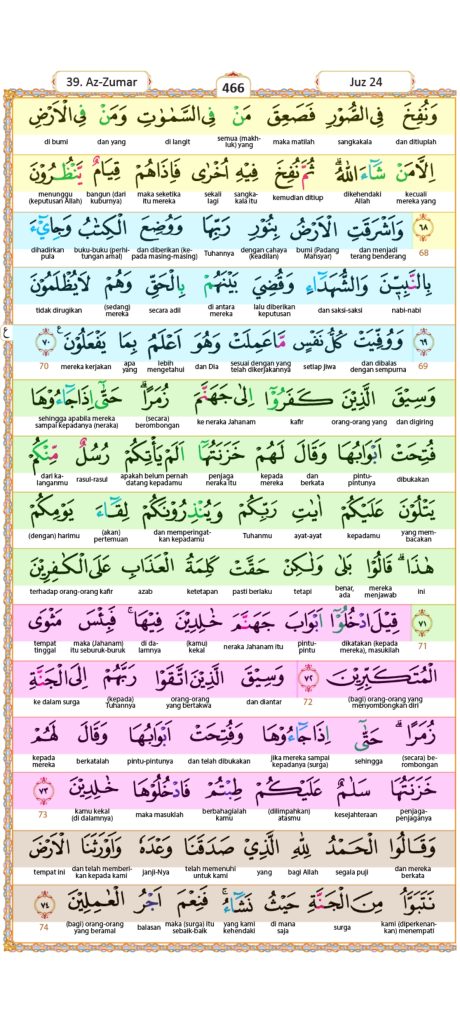 39. Az-Zumar
466
Juz 24
وَنُفِخَ فِى الصُّوْرِ فَصَعِقَ مَنْ فِى السَّمٰوٰتِ وَمَنْ فِى الْاَرْضِ
dan ditiuplah sangkakala maka matilah semua (makh-luk) yang di langit dan yang di bumi
اِلَّا مَنْ شَاۤءَ اللّٰهُ ۗ ثُمَّ نُفِخَ فِيْهِ اُخْرٰى فَاِذَاهُمْ قِيَامٌ يَّنْظُرُوْنَ
kecuali mereka yang dikehendaki Allah kemudian ditiup sangka-kala itu sekali lagi maka seketika itu mereka bangun (dari kuburnya) menunggu (keputusan Allah)
٦٨ وَاَشْرَقَتِ الْاَرْضُ بِنُوْرِ رَبِّهَا وَوُضِعَ الْكِتٰبُ وَجِايْۤءَ
68 dan menjadi terang benderang bumi (Padang Mahsyar) dengan cahaya (Keadilan) Tuhannya dan diberikan (ke-pada masing-masing) buku-buku (perhi-tungan amal) dihadirkan pula
بِالنَّبِيّٖنَ وَالشُّهَدَاۤءِ وَقُضِيَ بَيْنَهُمْ بِالْحَقِّ وَهُمْ لَا يُظْلَمُوْنَ
nabi-nabi dan saksi-saksi lalu diberikan keputusan di antara mereka secara adil (sedang) mereka tidak dirugikan
٦٩ وَوُفِّيَتْ كُلُّ نَفْسٍ مَّا عَمِلَتْ وَهُوَ اَعْلَمُ بِمَا يَفْعَلُوْنَ ࣖ ٧٠
69 dan dibalas dengan sempurna setiap Jiwa sesuai dengan yang telah dikerjakannya dan Dia lebih mengetahui apa yang mereka kerjakan 70
ع
وَسِيْقَ الَّذِيْنَ كَفَرُوْٓا اِلٰى جَهَنَّمَ زُمَرًا ۗ حَتّٰىٓ اِذَا جَاۤءُوْهَا
dan digiring orang-orang yang kafir ke neraka Jahanam (secara) berombongan sehingga apabila mereka sampai kepadanya (neraka)
فُتِحَتْ اَبْوَابُهَا وَقَالَ لَهُمْ خَزَنَتُهَآ اَلَمْ يَأْتِكُمْ رُسُلٌ مِّنْكُمْ
dibukakan pintu-pintunya dan berkata kepada mereka penjaga neraka itu apakah belum pernah datang kepadamu rasul-rasul dari ka-langanmu
يَتْلُوْنَ عَلَيْكُمْ اٰيٰتِ رَبِّكُمْ وَيُنْذِرُوْنَكُمْ لِقَاۤءَ يَوْمِكُمْ
yang mem-bacakan kepadamu ayat-ayat Tuhanmu dan memperingat-kan kepadamu (akan) pertemuan (dengan) harimu
هٰذَا ۗ قَالُوْا بَلٰى وَلٰكِنْ حَقَّتْ كَلِمَةُ الْعَذَابِ عَلَى الْكٰفِرِيْنَ
ini mereka menjawab benar, ada tetapi pasti berlaku ketetapan azab terhadap orang-orang kafir
٧١ قِيْلَ ادْخُلُوْٓا اَبْوَابَ جَهَنَّمَ خٰلِدِيْنَ فِيْهَا ۚ فَبِئْسَ مَثْوَى
71 dikatakan (kepada mereka), masukilah pintu-pintu neraka Jahanam itu (kamu) kekal di da-lamnya maka (Jahanam) itu seburuk-buruk tempat tinggal
الْمُتَكَبِّرِيْنَ ٧٢ وَسِيْقَ الَّذِيْنَ اتَّقَوْا رَبَّهُمْ اِلَى الْجَنَّةِ
(bagi) orang-orang yang menyombongkan diri 72 dan diantar orang-orang yang bertakwa (kepada) Tuhannya ke dalam surga
زُمَرًا ۗ حَتّٰىٓ اِذَا جَاۤءُوْهَا وَفُتِحَتْ اَبْوَابُهَا وَقَالَ لَهُمْ
(secara) be-rombongan sehingga jika mereka sampai kepadanya (surga) dan telah dibukakan pintu-pintunya berkatalah kepada mereka
خَزَنَتُهَا سَلٰمٌ عَلَيْكُمْ طِبْتُمْ فَادْخُلُوْهَا خٰلِدِيْنَ ٧٣
penjaga-penjaganya kesejahteraan (dilimpahkan) atasmu berbahagialah kamu maka masuklah kamu kekal (di dalamnya) 73
وَقَالُوا الْحَمْدُ لِلّٰهِ الَّذِيْ صَدَقَنَا وَعْدَهٗ وَاَوْرَثَنَا الْاَرْضَ
dan mereka berkata segala puji bagi Allah yang telah memenuhi untuk kami janji-Nya dan telah memberi-kan kepada kami tempat ini
نَتَبَوَّاُ مِنَ الْجَنَّةِ حَيْثُ نَشَاۤءُ ۚ فَنِعْمَ اَجْرُ الْعٰمِلِيْنَ ٧٤
kami (diperkenan-kan) menempati surga di mana saja yang kami kehendaki maka (surga) itu sebaik-baik balasan (bagi) orang-orang yang beramal 74